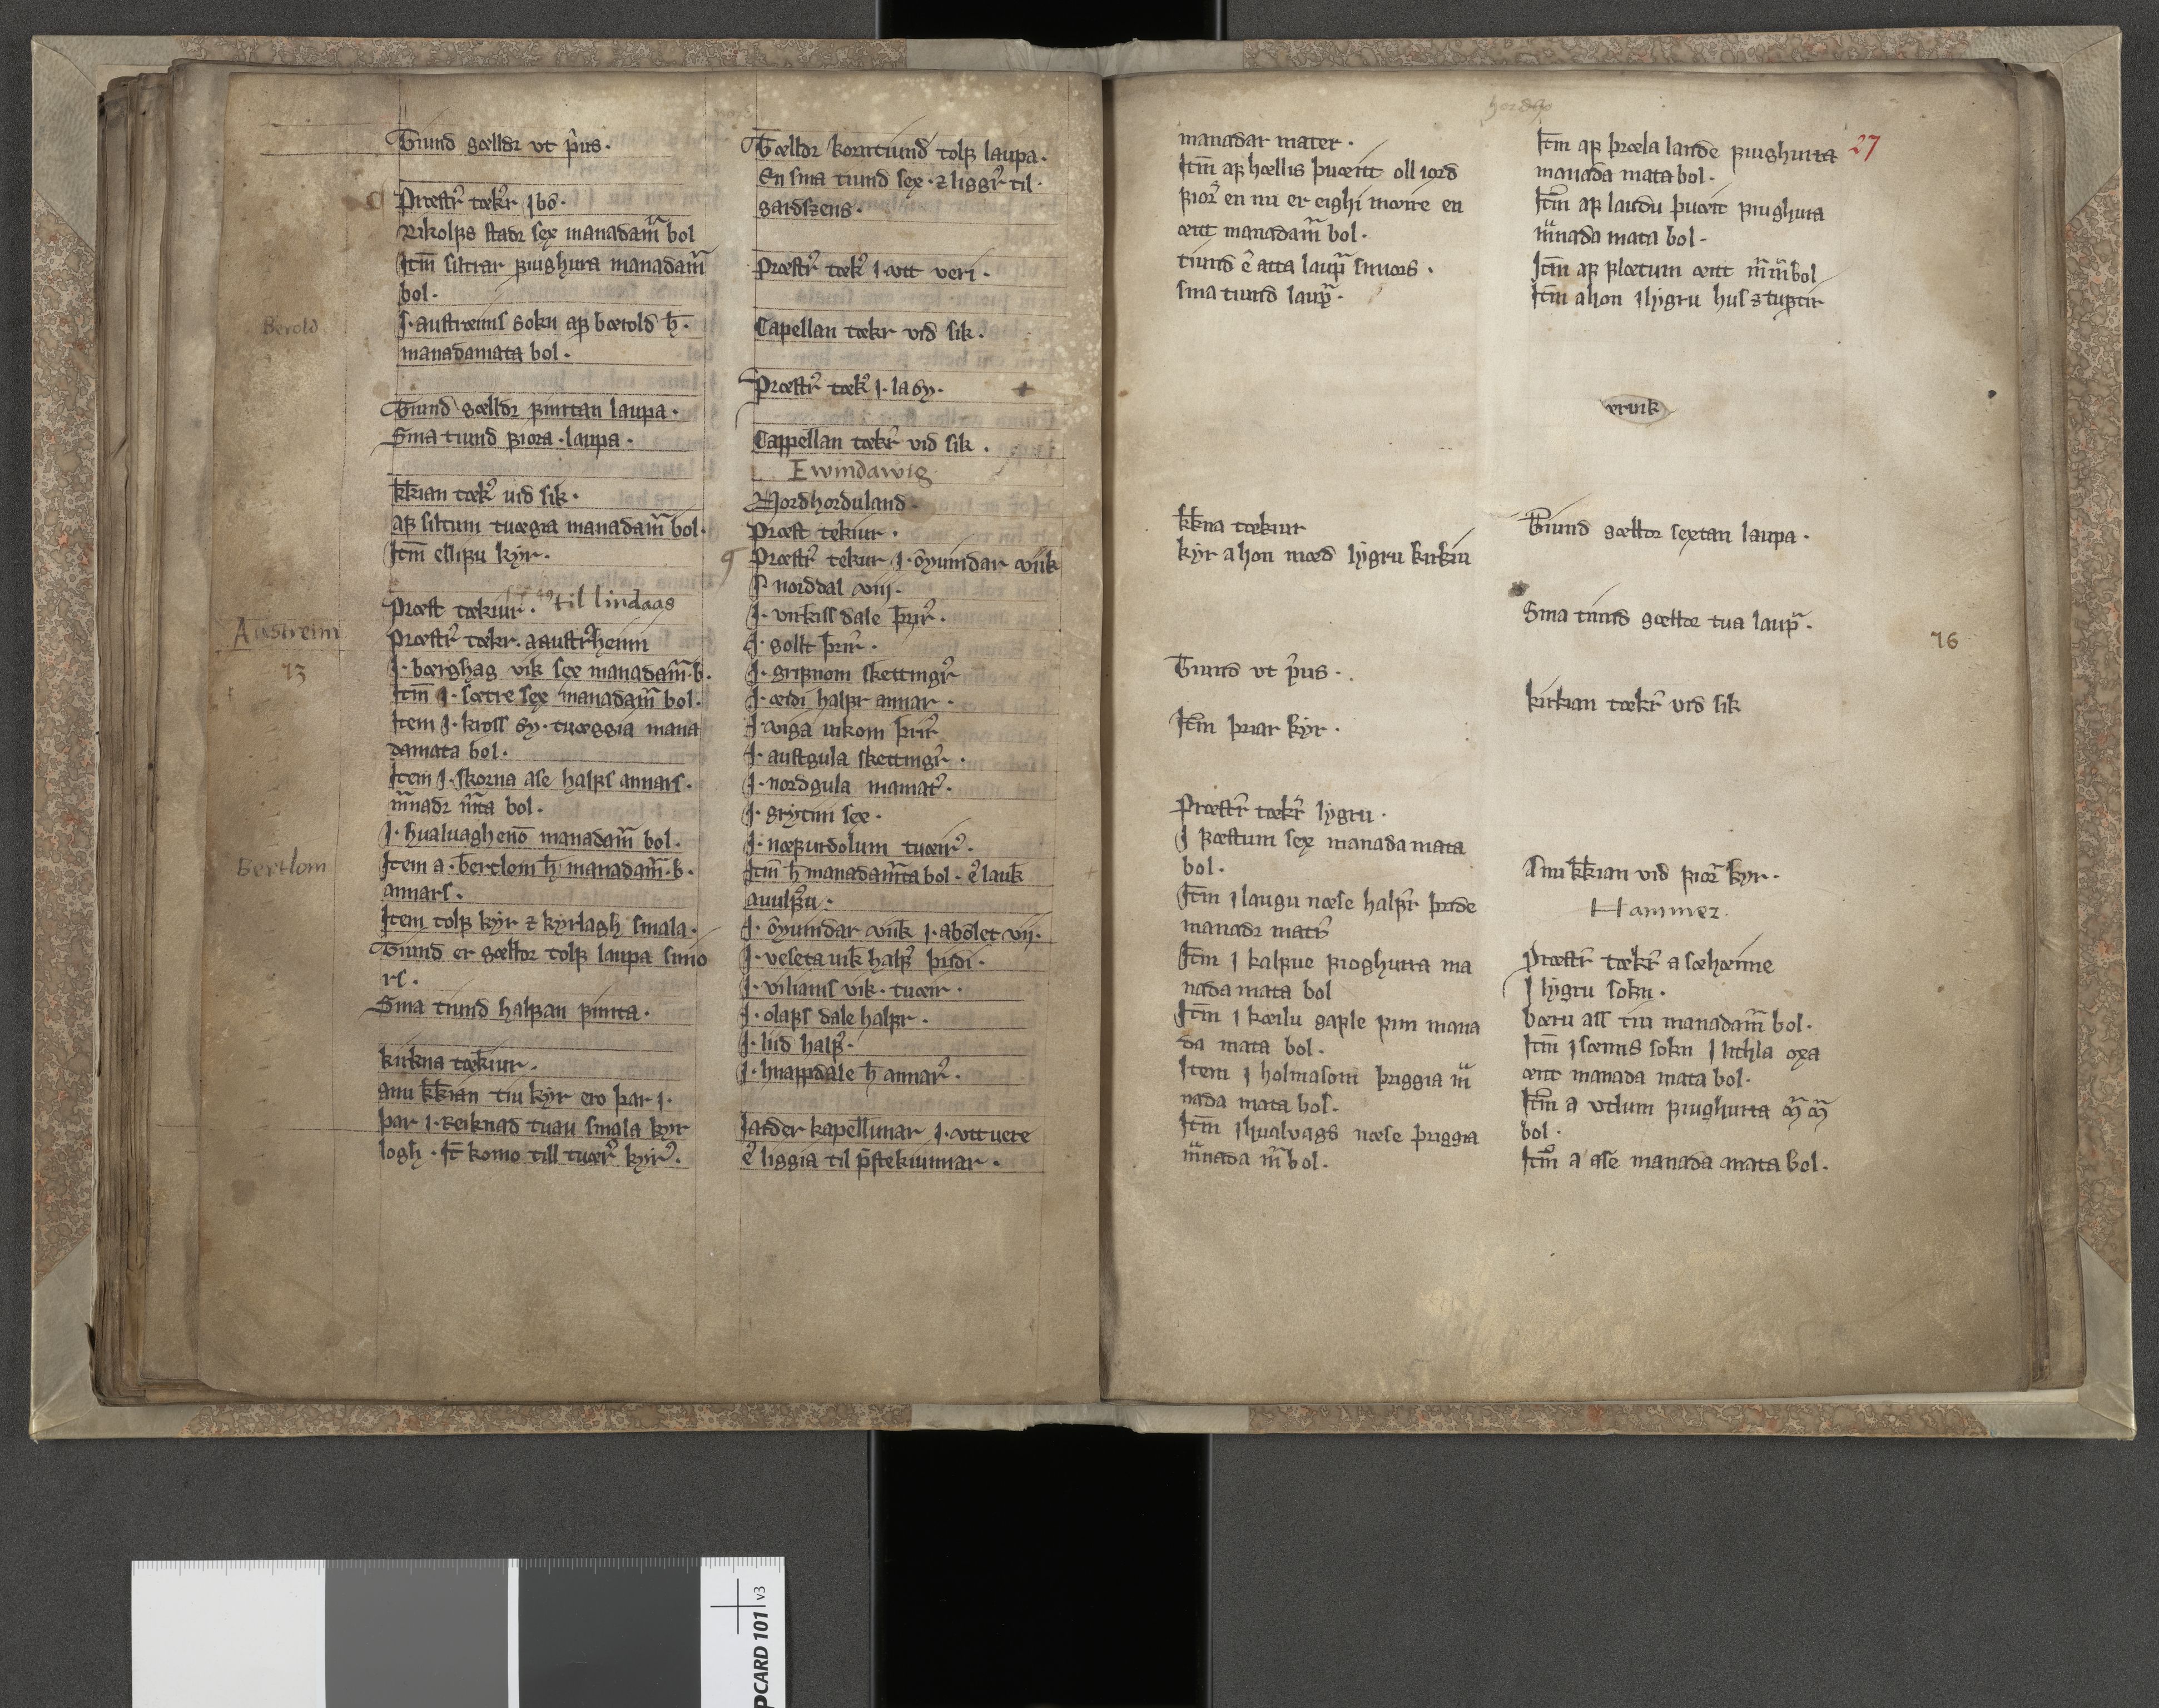 Tiund gælldr vt p̉us.
Præstr̉ tæk̉r ibo.
Rikolfs stadr sex manadam̃ bol
Itm̃ siltrar fiughura manadam̃
bol.
J. austræims sokn af bærold h̵.
manadamata bol.
Tiund gælldr fimtan laupa.
Sma tiund fiora. laupa.
k̄kian tæk̉ uid sik.
af siltum tuægia manadam̃ bol.
Itm̃ ellifu kyr.
Præst tækiur. til lindaas
Præstr̉ tækr. a austrheimi
J. bærghag vik sex manadam̃. b.
Itm̃ J. sætre sex manadam̃ bol.
Item J. kross by. tuæggia mana
damata bol.
Item J. skorna ase halfs annars.
m̃nadr m̃ta bol.
J. hualuagheno manadam̃ bol.
Item a. bertlom h̵ manadam̃. b.
annars.
Item tolf kyr ⁊ kyrlagh smala.
Tiund er gælldr tolf laupa smio
rs.
Sma tiund halfan fimta.
kirkna tækiur.
anu k̄kian tiu kyr ero þar J.
þar J. Reiknad tuau smala kyr
logh. It̃ komo till tuær̉ kyr̉.
Berold
Austreim
13
Bertlom
Gælldr korntiund tolf laupa.
En sma tiund sex. ⁊ liggr̉ til
gardszens.
Præstr̉ tæk̉ J. vtt veri.
Capellan tækr vid sik.
Præstr̉ tæk̉ J. laby.
Cappellan tæk̉r vid sik.
Ewindawig
Nordhorduland.
Præst tekiur.
Præstr̉ tekur J. øyuindar wiik
J. norddal viij.
J. virkiss dale þrir̉.
J. gollt þrir̉.
J. grifnom skettingr̉
J. æidi halfr annar.
J. wiga uikom þrir̉
J. austgula skettingr̉.
J. nordgula mamat̉.
J. grytini sex.
J. næfurdolum tuæir̉.
Itm̃ h̵ manadam̃ta bol. e̓ lauk̉
auulfsu.
J. øyuindar wiik J. abølet vij.
J. veseta uik half̉ þridi.
J. viliams vik. tuæir.
J. olafs dale halfr.
J. lid half̉.
J. hnappdale h̵ annar̉.
Iarder kapellunar J. vtt uere
e̓ liggia til p̃stekiunnar.
hordh
27
manadar mater.
Itm̃ af hællis þuæit oll iord
fior̉ en nu er eighi mæire en
æitt manadam̃ bol.
tiund e̓ atta laup̃ smiors.
sma tiund laup̃.
k̄kna tækiur
kyr a hon mæd lygru kirkiu
Tiund vt p̉us.
Itm̃ þriar kyr.
Præstr̉ tæk̉r lygru.
J fæstum sex manada mata
bol.
Itm̃ J laugu næse halfr̉ þride
manadr mat̉r
Itm̃ J kalfue fioghurra ma
nada mata bol
Itm̃ J kæilu gafle fim mana
da mata bol.
Item J holmasom þriggia m̃
nada mata bol.
Itm̃ J hualvags næse þriggia
m̃nada m̃ bol.
Itm̃ af þræla lande fiughurra
manada mata bol.
Itm̃ af landu þuæit fiughura
m̃nada mata bol.
Itm̃ af flætum æitt m̃ m̃ bol
Itm̃ a hon J lygru hus ⁊ tuptir
eruik
Tiund gælldr sextan laupa.
Sma tiund gælldr tua laup̃.
kirkian tæk̉r vid sik
A nu k̄kian vid fior̃ kyr.
Hammer.
Præstr̉ tæk̉r a sæhæime
J lygru sokn.
bæru all tiu manadam̃ bol.
Itm̃ J sæims sokn J lithla oxa
æitt manada mata bol.
Itm̃ a vtlum fiughurra m̃ m̃
bol.
Itm̃ a ase manada mata bol.
16